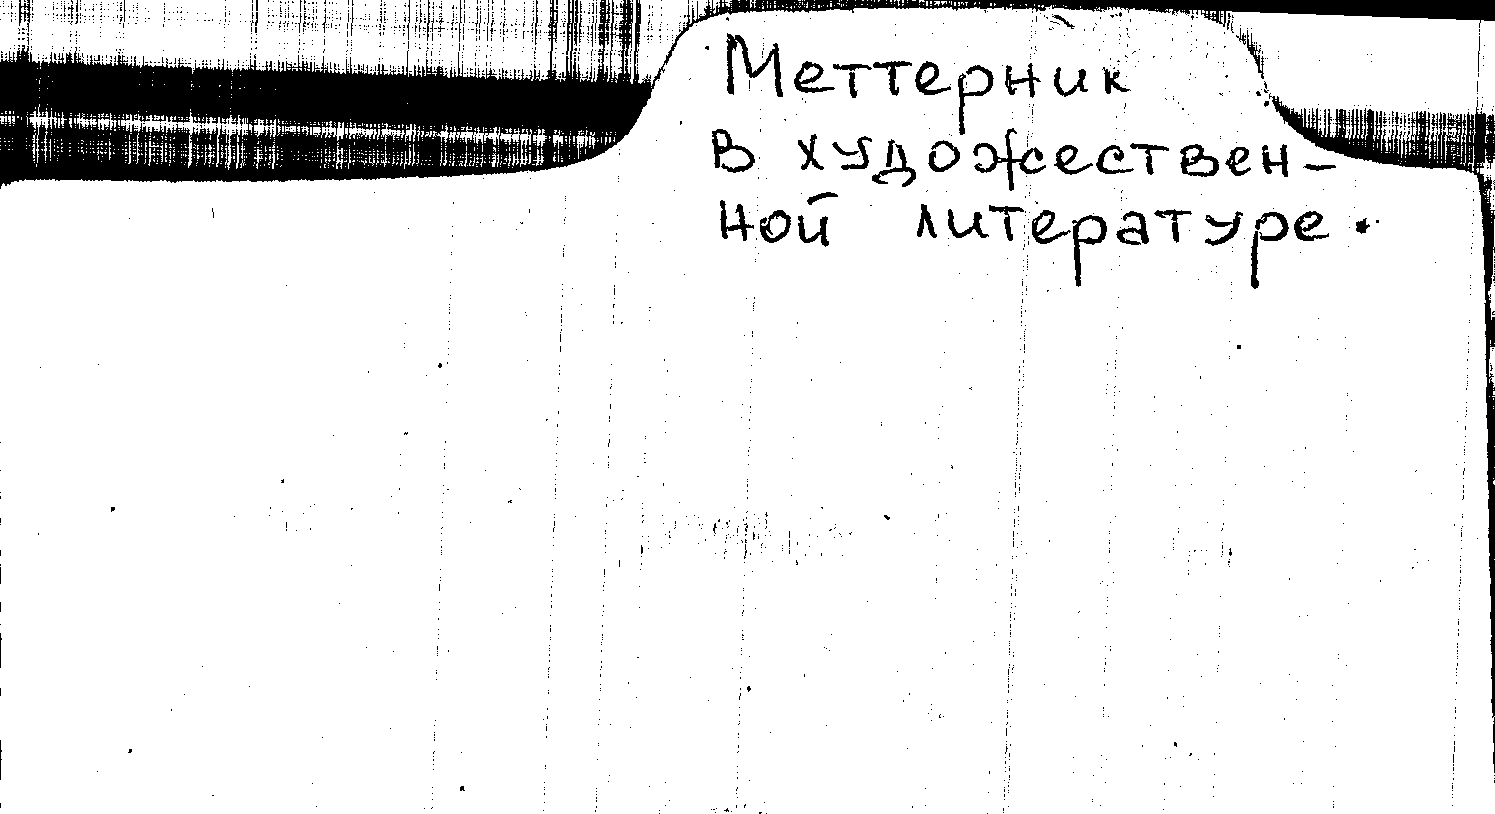 Меттерник
в художествен-
ной литературе.